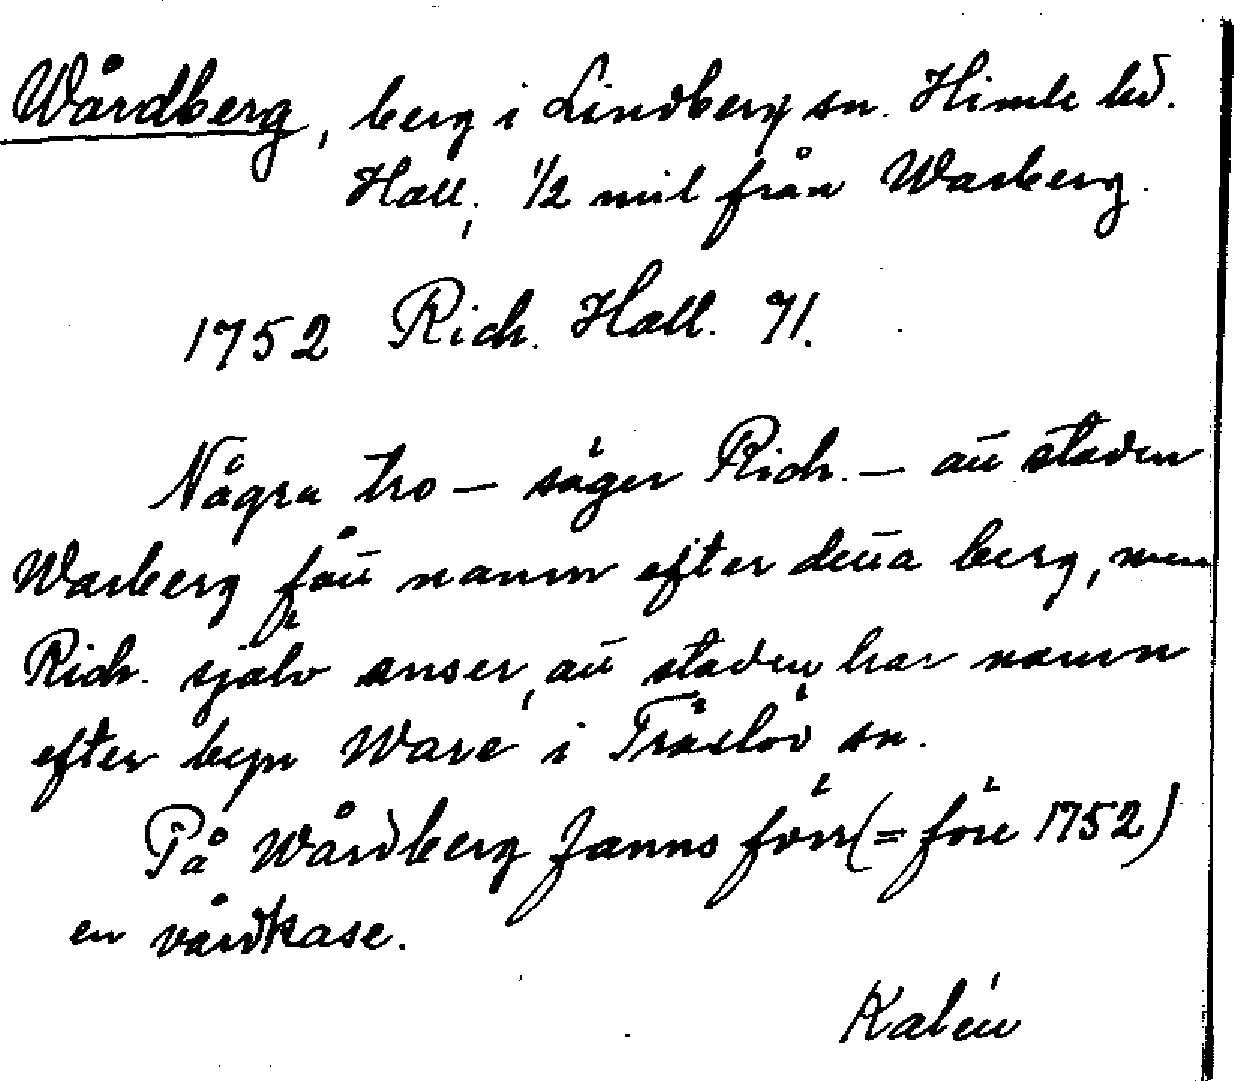 Wårdberg, berg i Lindberg sn. Himle hd.
Hall., 1/2 mil från Warberg.
1752 Rich. Hall. 71.
Några tro — säger Rich. — att staden
Warberg fått namn efter detta berg, men
Rich. själv anser, att staden har namn
efter byn Ware i Träslöv sn.
På Wårdberg fanns förr (= före 1752)
en vårdkase.
Kalén